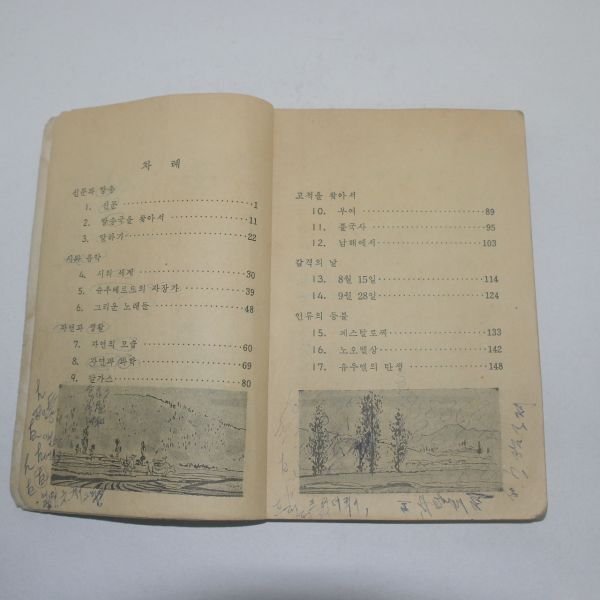 차 례
신문과 방송
1. 신문 1
2. 방송국을 찾아서 11
3. 말하기 22
시와 음악
4. 시의 세계 30
5. 슈우베르트의 자장가 39
6. 그리운 노래들 48
자연과 생활
7. 자연의 모습 60
8. 자연과 과학 69
9. 달가스 80
고적을 찾아서
10. 부여 89
11. 불국사 95
12. 남해에서 103
감격의 날
13. 8월 15일 114
14. 9월 28일 124
인류의 등불
15. 페스탈로찌 133
16. 노오벨상 142
17. 유우엔의 탄생 148